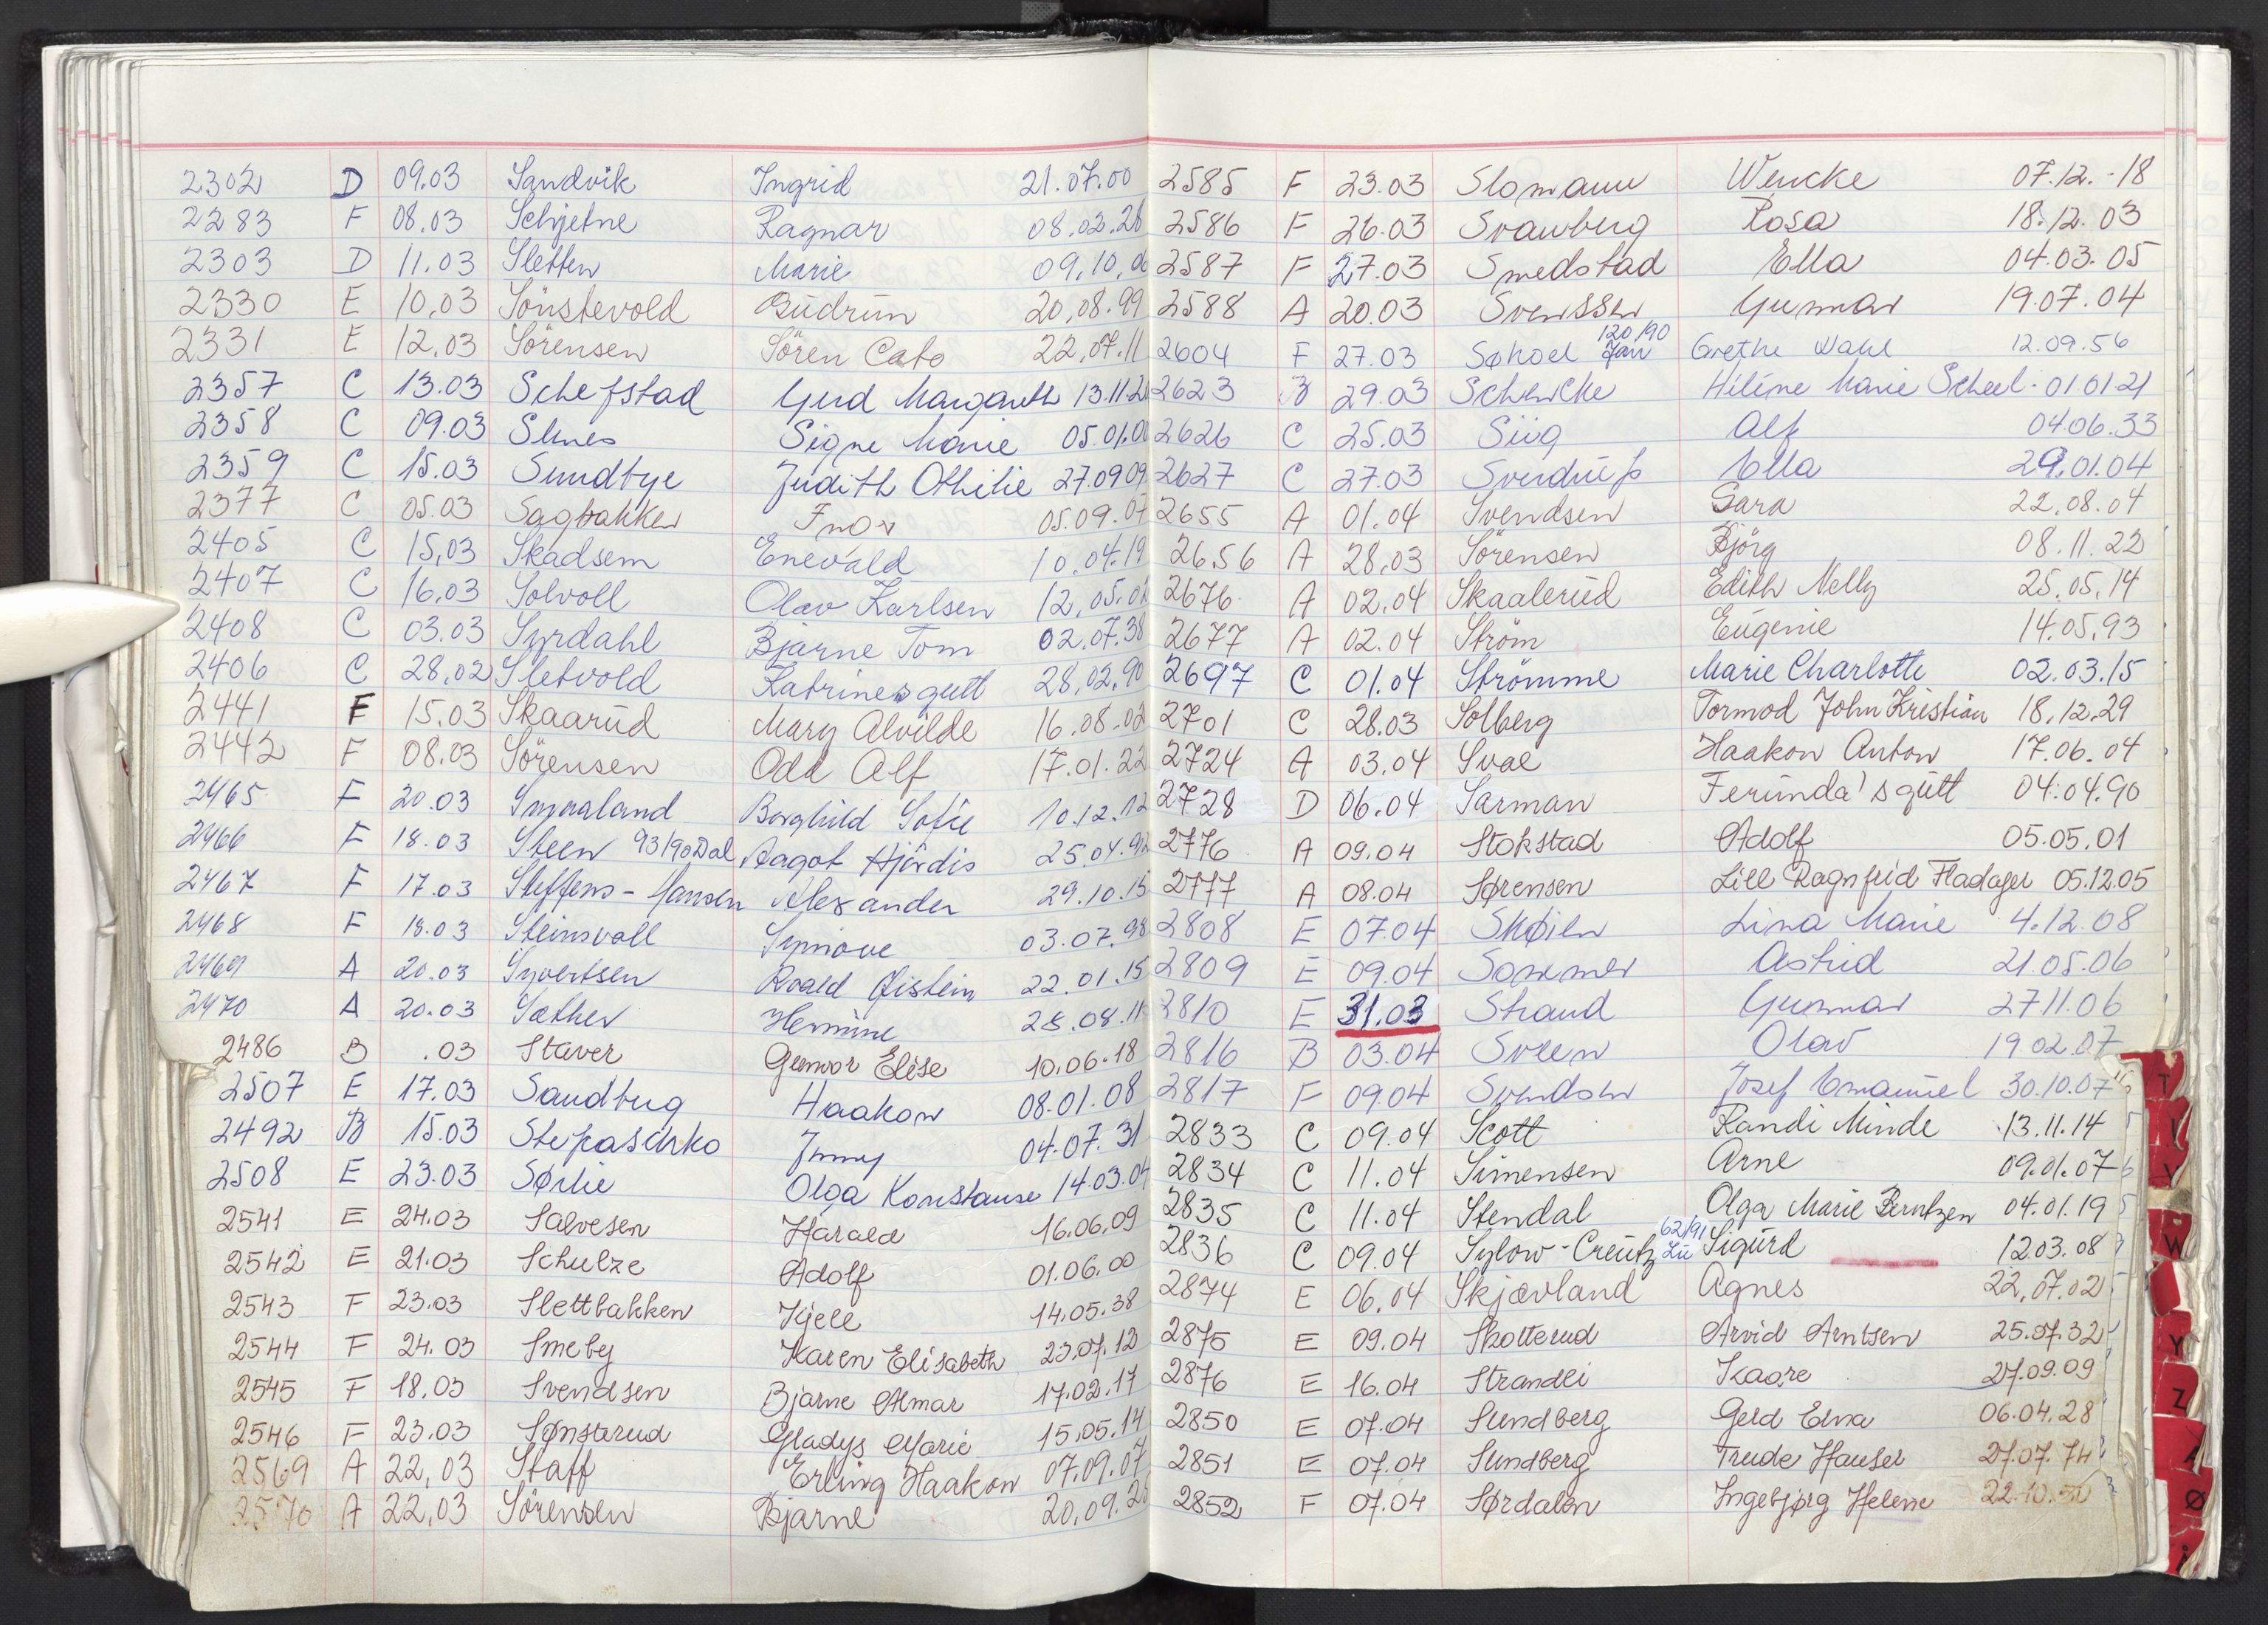 2302 D 09.03 Sandvik Ingrid 21.07.00
2283 F 08.03 Schjetne Ragnar 08.02.28
2303 D 11.03 Sletten Marie 09.10.0
2330 E 10.03 Sönstevold Gudrun 20.08.99
2331 E 12.03 Sörensen Sören Cato 22.07.11
2357 C 13.03 Schefstad Gerd Margareth 13.11.2
2358 C 09.03 Stenes Signe Marie 05.01.00
2359 C 15.03 Sundbye Judith Othilie 27.09.09
2377 C 05.03 Sagbakken 05.09.07
2405 C 15.03 Skadsem Enevald 10.04.19
2407 C 16.03 Solvoll Olav Karlsen 12.05.0
2408 C 03.03 Syrdahl Bjarne Tom 02.07.38
2406 C 28.02 Sletvold Katrines gutt 28.02.90
2441 F 15.03 Skaarud Mary Alvilde 16.08.02
2442 F 08.03 Sörensen Odd Alf 17.01.22
2465 F 20.03 Smaaland Borghild Sofie 10.12.12
2466 F 18.03 Steen 93/90 Dal Aagot Hjördis 25.04.92
2467 F 17.03 Steffens-Hansen Alexander 29.10.15
2468 F 18.03 Steinsvoll Synnöve 03.07.98
2469 A 20.03 Syvertsen Roald Øistein 22.01.15
2470 A 20.03 Sæther Hermine 28.08.11
2486 B .03 Staver Gunvor Elise 10.06.18
2507 E 17.03 Sandbug Haakon 08.01.08
2492 B 15.03 Stepaschko Jenny 04.07.31
2508 E 23.03 Sørlie Olga Konstanse 14.03.04
2541 E 24.03 Salvesen Harald 16.06.09
2542 E 21.03 Schulze Adolf 01.06.00
2543 F 23.03 Slettbakken Kjell 14.05.38
2544 F 24.03 Smeby Karen Elisabeth 23.07.12
2545 F 18.03 Svendsen Bjarne Almar 17.02.17
2546 F 23.03 Sønsterud Gladys Marie 15.05.14
2569 A 22.03 Staff Erling Haakon 07.09.07
2570 A 22.03 Sörensen Bjarne 20.09.2
2585 F 23.03 Slomann Wencke 07.12.-18
2586 F 26.03 Svanberg Rosa 18.12.03
2587 F 27.03 Smedstad Ella 04.03.05
2588 A 20.03 Svenssen Gunnar 19.07.04
2604 F 27.03 Schoel 120/90 Jan Grethe Dahl 12.09.56
2623 B 29.03 Schencke Heléne Marie Scheel. 01.01.21
2626 C 25.03 Siig Alf 04.06.33
2627 C 27.03 Sverdrup Ella 29.01.04
2655 A 01.04 Svendsen Sara 22.08.04
2656 A 28.03 Sörensen Björg 08.11.22
2676 A 02.04 Skaalerud Edith Nelly 25.05.14
2677 A 02.04 Ström Eugenie 14.05.93
2697 C 01.04 Strömme Marie Charlotte 02.03.15
2701 C 28.03 Solberg Tormod John Kristian 18.12.29
2724 A 03.04 Svae Haakon Anton 17.06.04
2728 D 06.04 Sarman Ferunda's gutt 04.04.90
2776 A 09.04 Stokstad Adolf 05.05.01
2777 A 08.04 Sørensen Lill Ragnfrid Fladager 05.12.05
2808 E 07.04 Skøien Lina Marie 4.12.08
2809 E 09.04 Sommer Astrid 21.05.06
2810 E 31.03 Strand Gunnar 27.11.06
2816 B 03.04 Sveen Olav 19.02.07
2817 F 09.04 Svendsen Josef Emanuel 30.10.07
2833 C 09.04 Scott Randi Minde 13.11.14
2834 C 11.04 Simensen Arne 09.01.07
2835 C 11.04 Stendal Olga Marie Berntzen 04.01.19
2836 C 09.04 Sylow-Creutz 62/91 Lü Sigurd 12.03.08
2874 E 06.04 Skjævland Agnes 22.07.02
2875 E 09.04 Skotterud Arvid Arntsen 25.07.32
2876 E 16.04 Strandli Kaare 27.09.09
2850 E 07.04 Sundberg Gerd Edna 06.04.28
2851 E 07.04 Sundberg Trude Hauser 27.07.74
2852 F 07.04 Sørdalen Ingebjørg Helene 22.10.
T
V
W
Y
Z
Ø